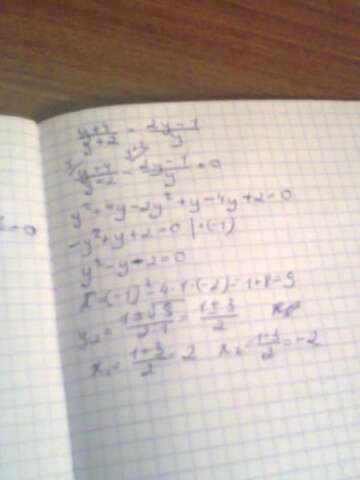 (y+4)/(y+2) = (2y-1)/y
(y+4)/(y+2) - (2y-1)/y = 0
y²+4y-2y²+y-4y+2=0
-y²+y+2=0 |·(-1)
y²-y-2=0
D=(-1)²-4·1·(-2)=1+8=9
y₁,₂=(1±√9)/(2·1)=(1±3)/2
x₁=(1+3)/2=2 x₂=(1-3)/2=-2